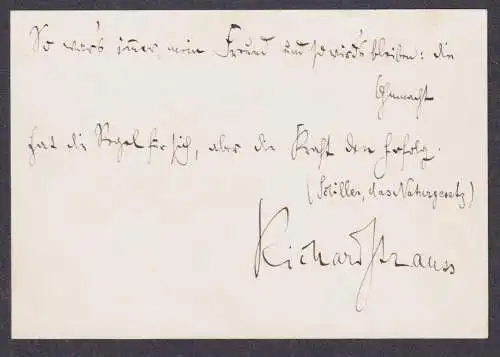 So war's immer, mein Freund und so wird's bleiben: die
Ohnmacht
hat die Regel für sich, aber die Kraft den Erfolg.
(Schiller, das Naturgesetz)
Richard Strauss